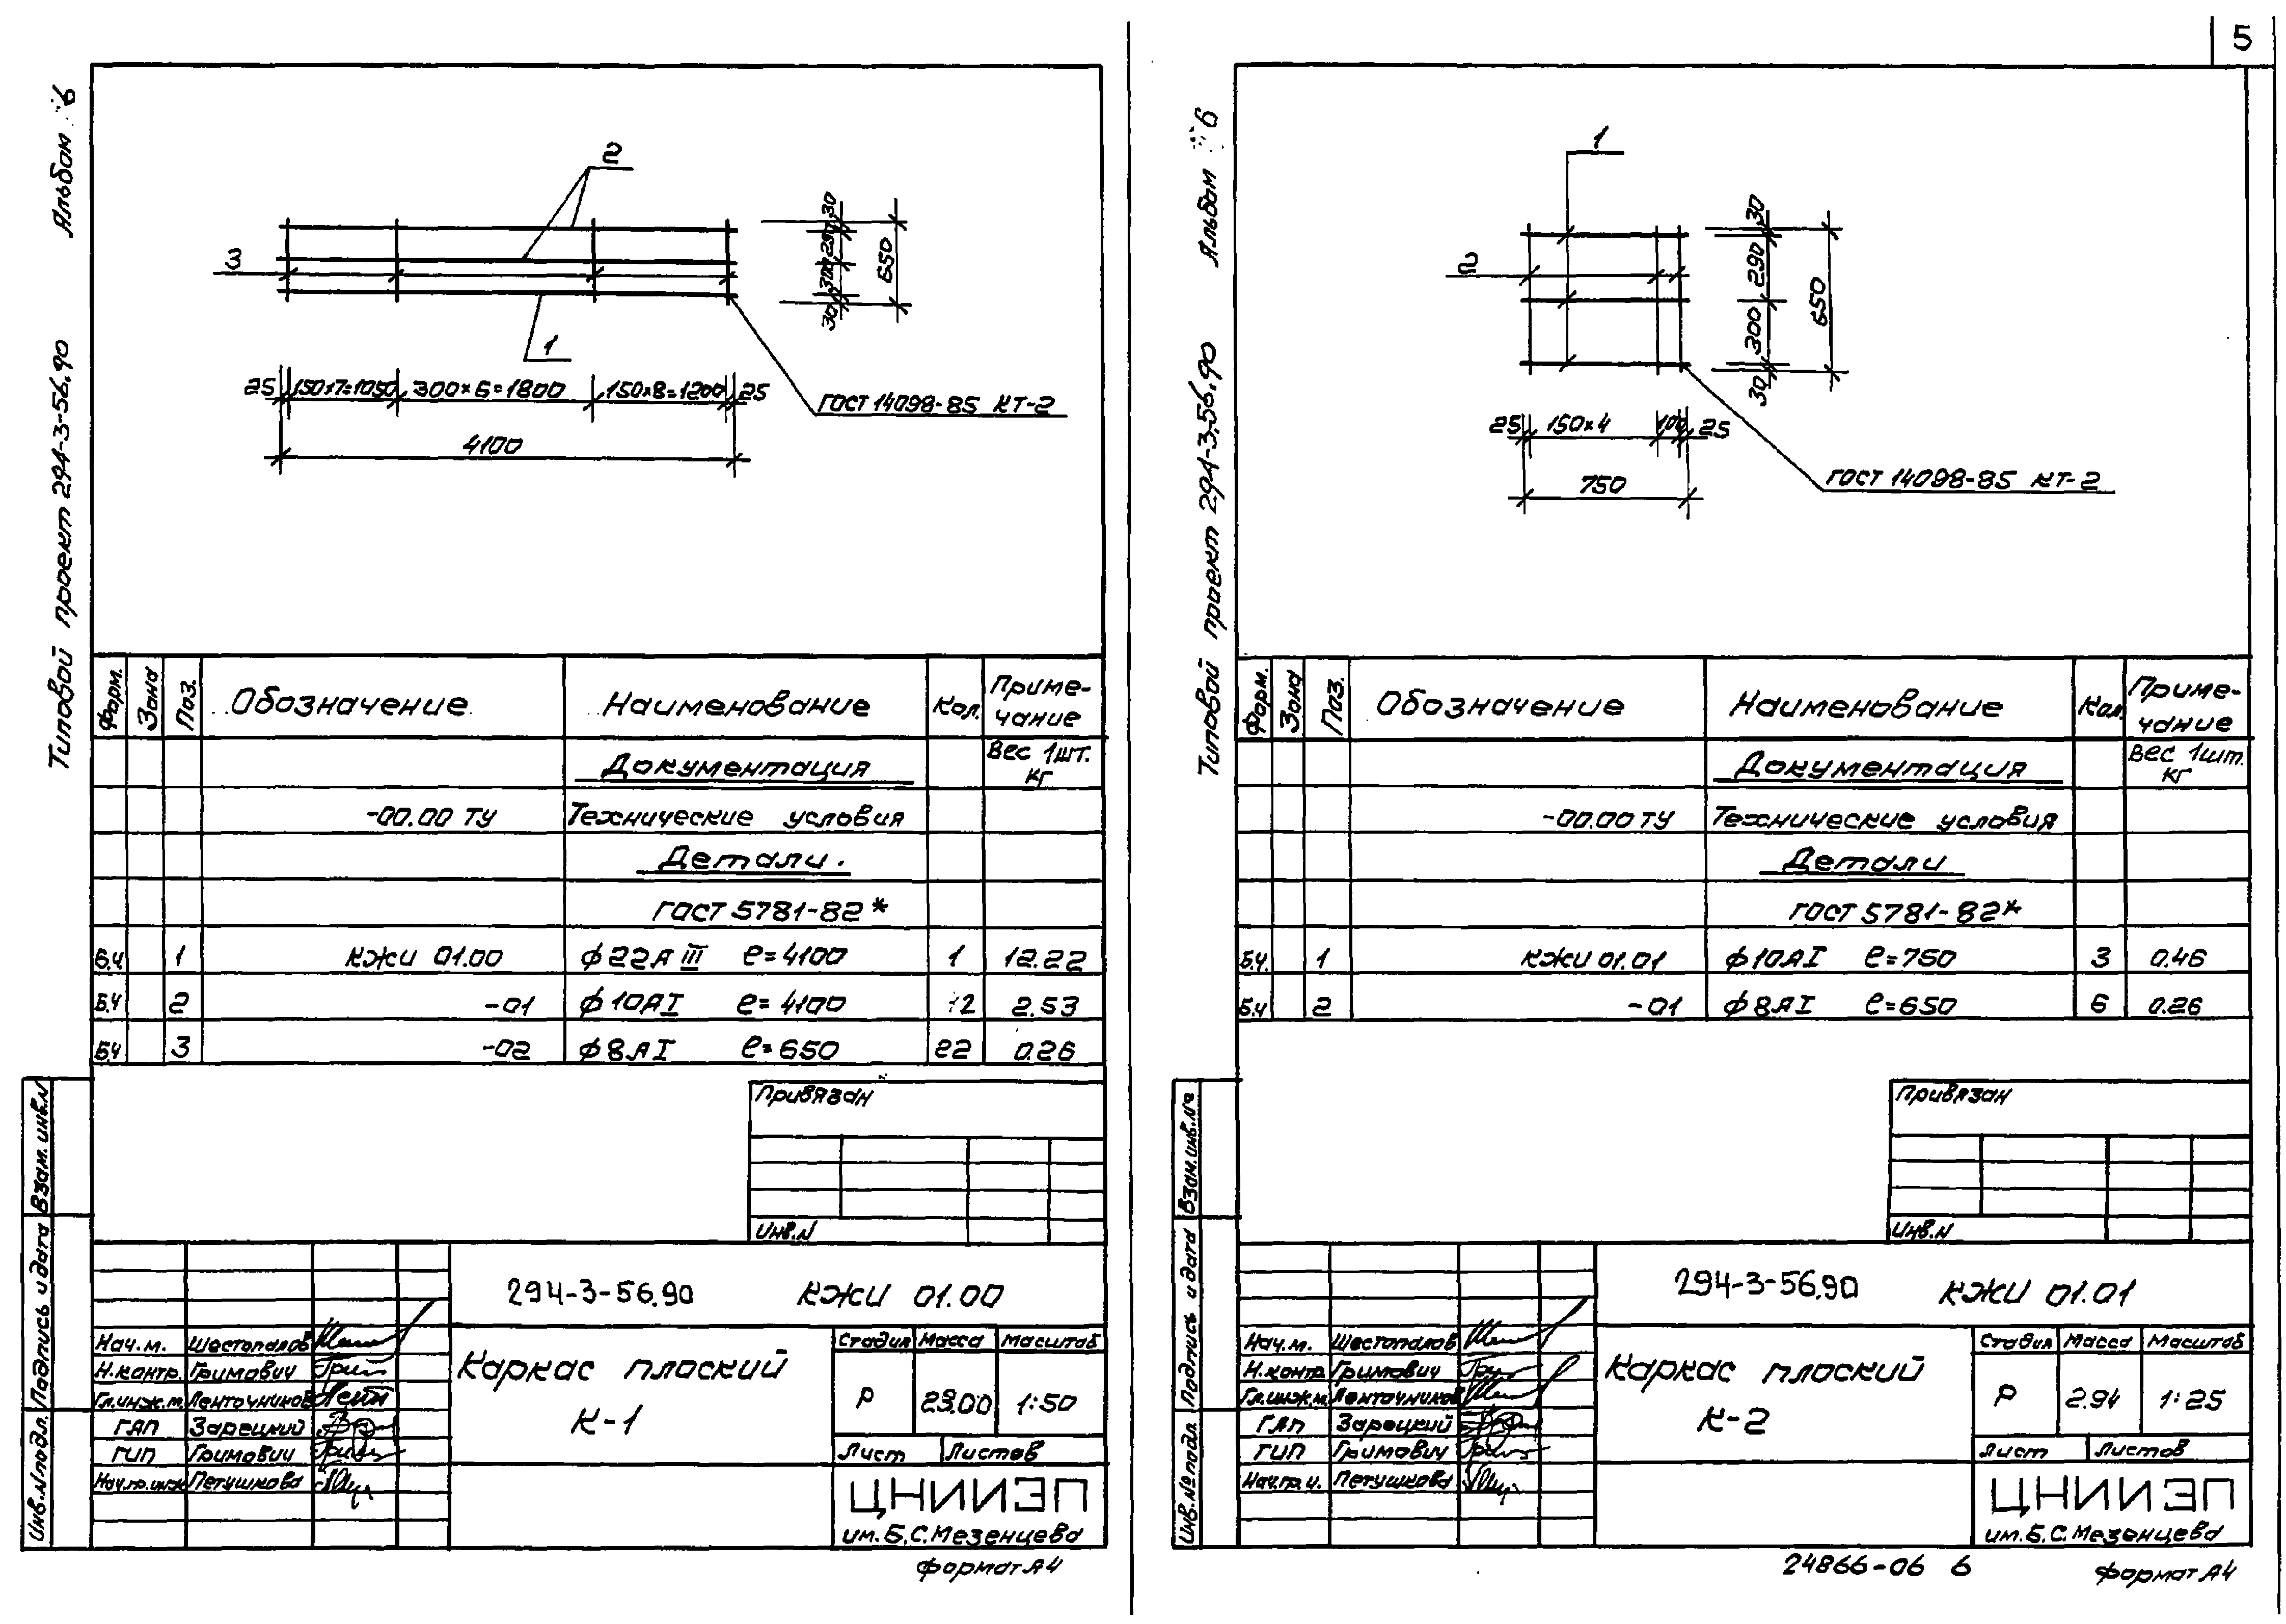 5
Альбом 6
Типовой проект 294-3-56.90
2
3
1
30
290
300
30
650
25 150х7=1050 300х6=1800 150х8=1200 25
4100
ГОСТ 14098-85 КТ-2
Форм. Зона Поз. Обозначение Наименование Кол. Приме-
чание
Документация Вес 1шт.
кг
-00.00 ТУ Технические условия
Детали.
ГОСТ 5781-82*
Б.Ч 1 КЖИ 01.00 ф22АIII ℓ=4100 1 12.22
Б.Ч 2 -01 ф10АI ℓ=4100 2 2.53
Б.Ч 3 -02 ф8АI ℓ=650 22 0.26
Привязан
Инв.N
Взам. инв.N
Подпись и дата
Инв.N подл.
294-3-56.90 КЖИ 01.00
Нач.м. Шестопалов
Н.контр. Гримович
Гл.инж.м. Ленточников
ГАП Зарецкий
ГИП Гримович
Нач.гр.инж Петушкова
Каркас плоский
К-1
Стадия Масса Масштаб
Р 23.00 1:50
Лист Листов
ЦНИИЭП
им. Б.С. Мезенцева
Формат А4
Альбом 6
Типовой проект 294-3-56.90
1
2
30
290
300
30
650
25 150х4 100 25
750
ГОСТ 14098-85 КТ-2
Форм. Зона Поз. Обозначение Наименование Кол. Приме-
чание
Документация Вес 1шт.
кг
-00.00 ТУ Технические условия
Детали
ГОСТ 5781-82*
Б.Ч. 1 КЖИ 01.01 ф10АI ℓ=750 3 0.46
Б.Ч 2 -01 ф8АI ℓ=650 6 0.26
Привязан
Инв.N
Взам.инв.№
Подпись и дата
Инв.№ подл.
294-3-56.90 КЖИ 01.01
Нач.м. Шестопалов
Н.контр Гримович
Гл.инж.м. Ленточников
ГАП Зарецкий
ГИП Гримович
Нач.гр.и. Петушкова
Каркас плоский
К-2
Стадия Масса Масштаб
Р 2.94 1:25
Лист Листов
ЦНИИЭП
им. Б.С. Мезенцева
24866-06 6
Формат А4